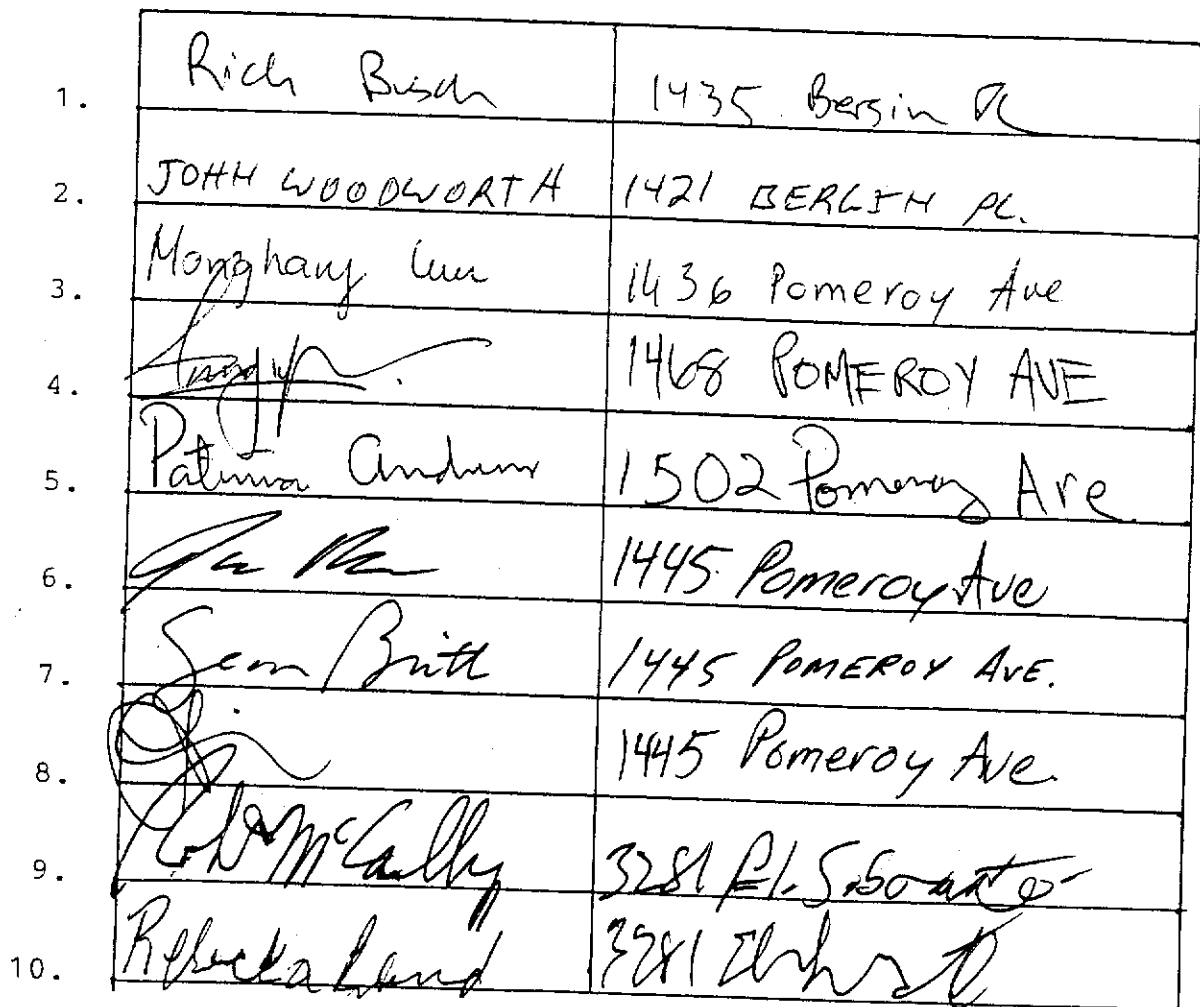 1. Rich Busch 1435 Bergin Pl
2. JOHN WOODWORTH 1421 BERGIN PL.
3. Monghang Luu 1436 Pomeroy Ave
4. 1468 POMEROY AVE
5. Patricia Andrews 1502 Pomeroy Ave
6. 1445 Pomeroy Ave
7. Sean Britt 1445 POMEROY AVE.
8. 1445 Pomeroy Ave.
9. McCaulley 3281
10. Rebecka 3281